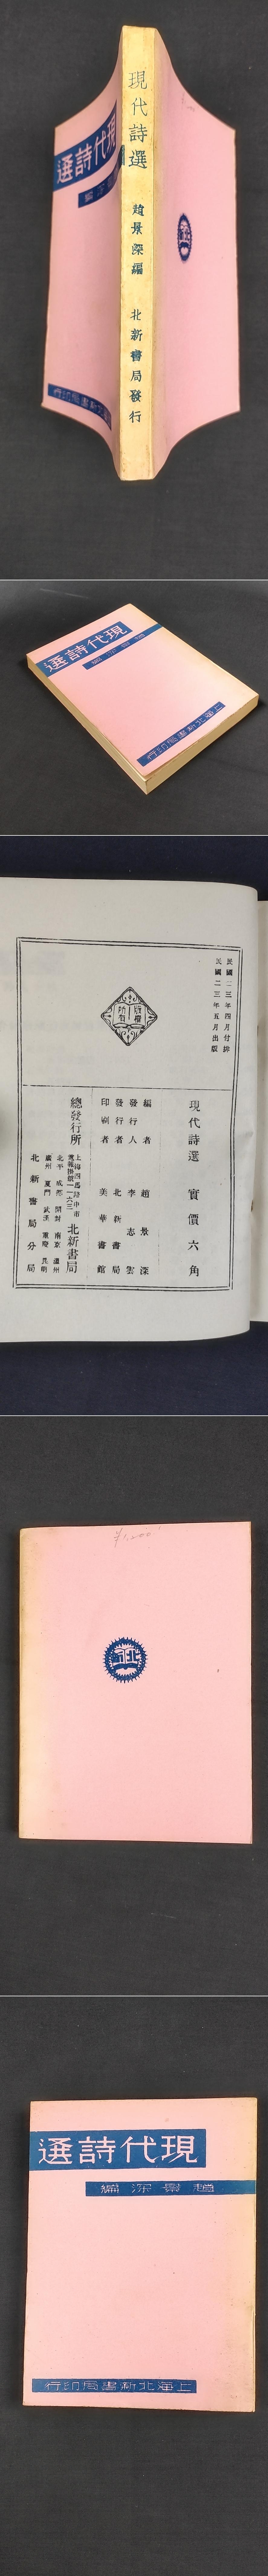 現代詩選
趙景深編
北新書局發行
現代詩選
上海北新書局印行
現代詩選
上海北新書局印行
民國二三年四月付排
民國二三年五月出版
版權所有
現代詩選 實價六角
編者 趙景深
發行人 李志雲
發行者 北新書局
印刷者 美華書館
總發行所
上海四馬路中市
電報掛號一六三一
北新書局
北平 成都 開封 南京 溫州
廣州 廈門 武漢 重慶 昆明
北新書局分局
¥1,000
北新
現代詩選
趙景深編
上海北新書局印行